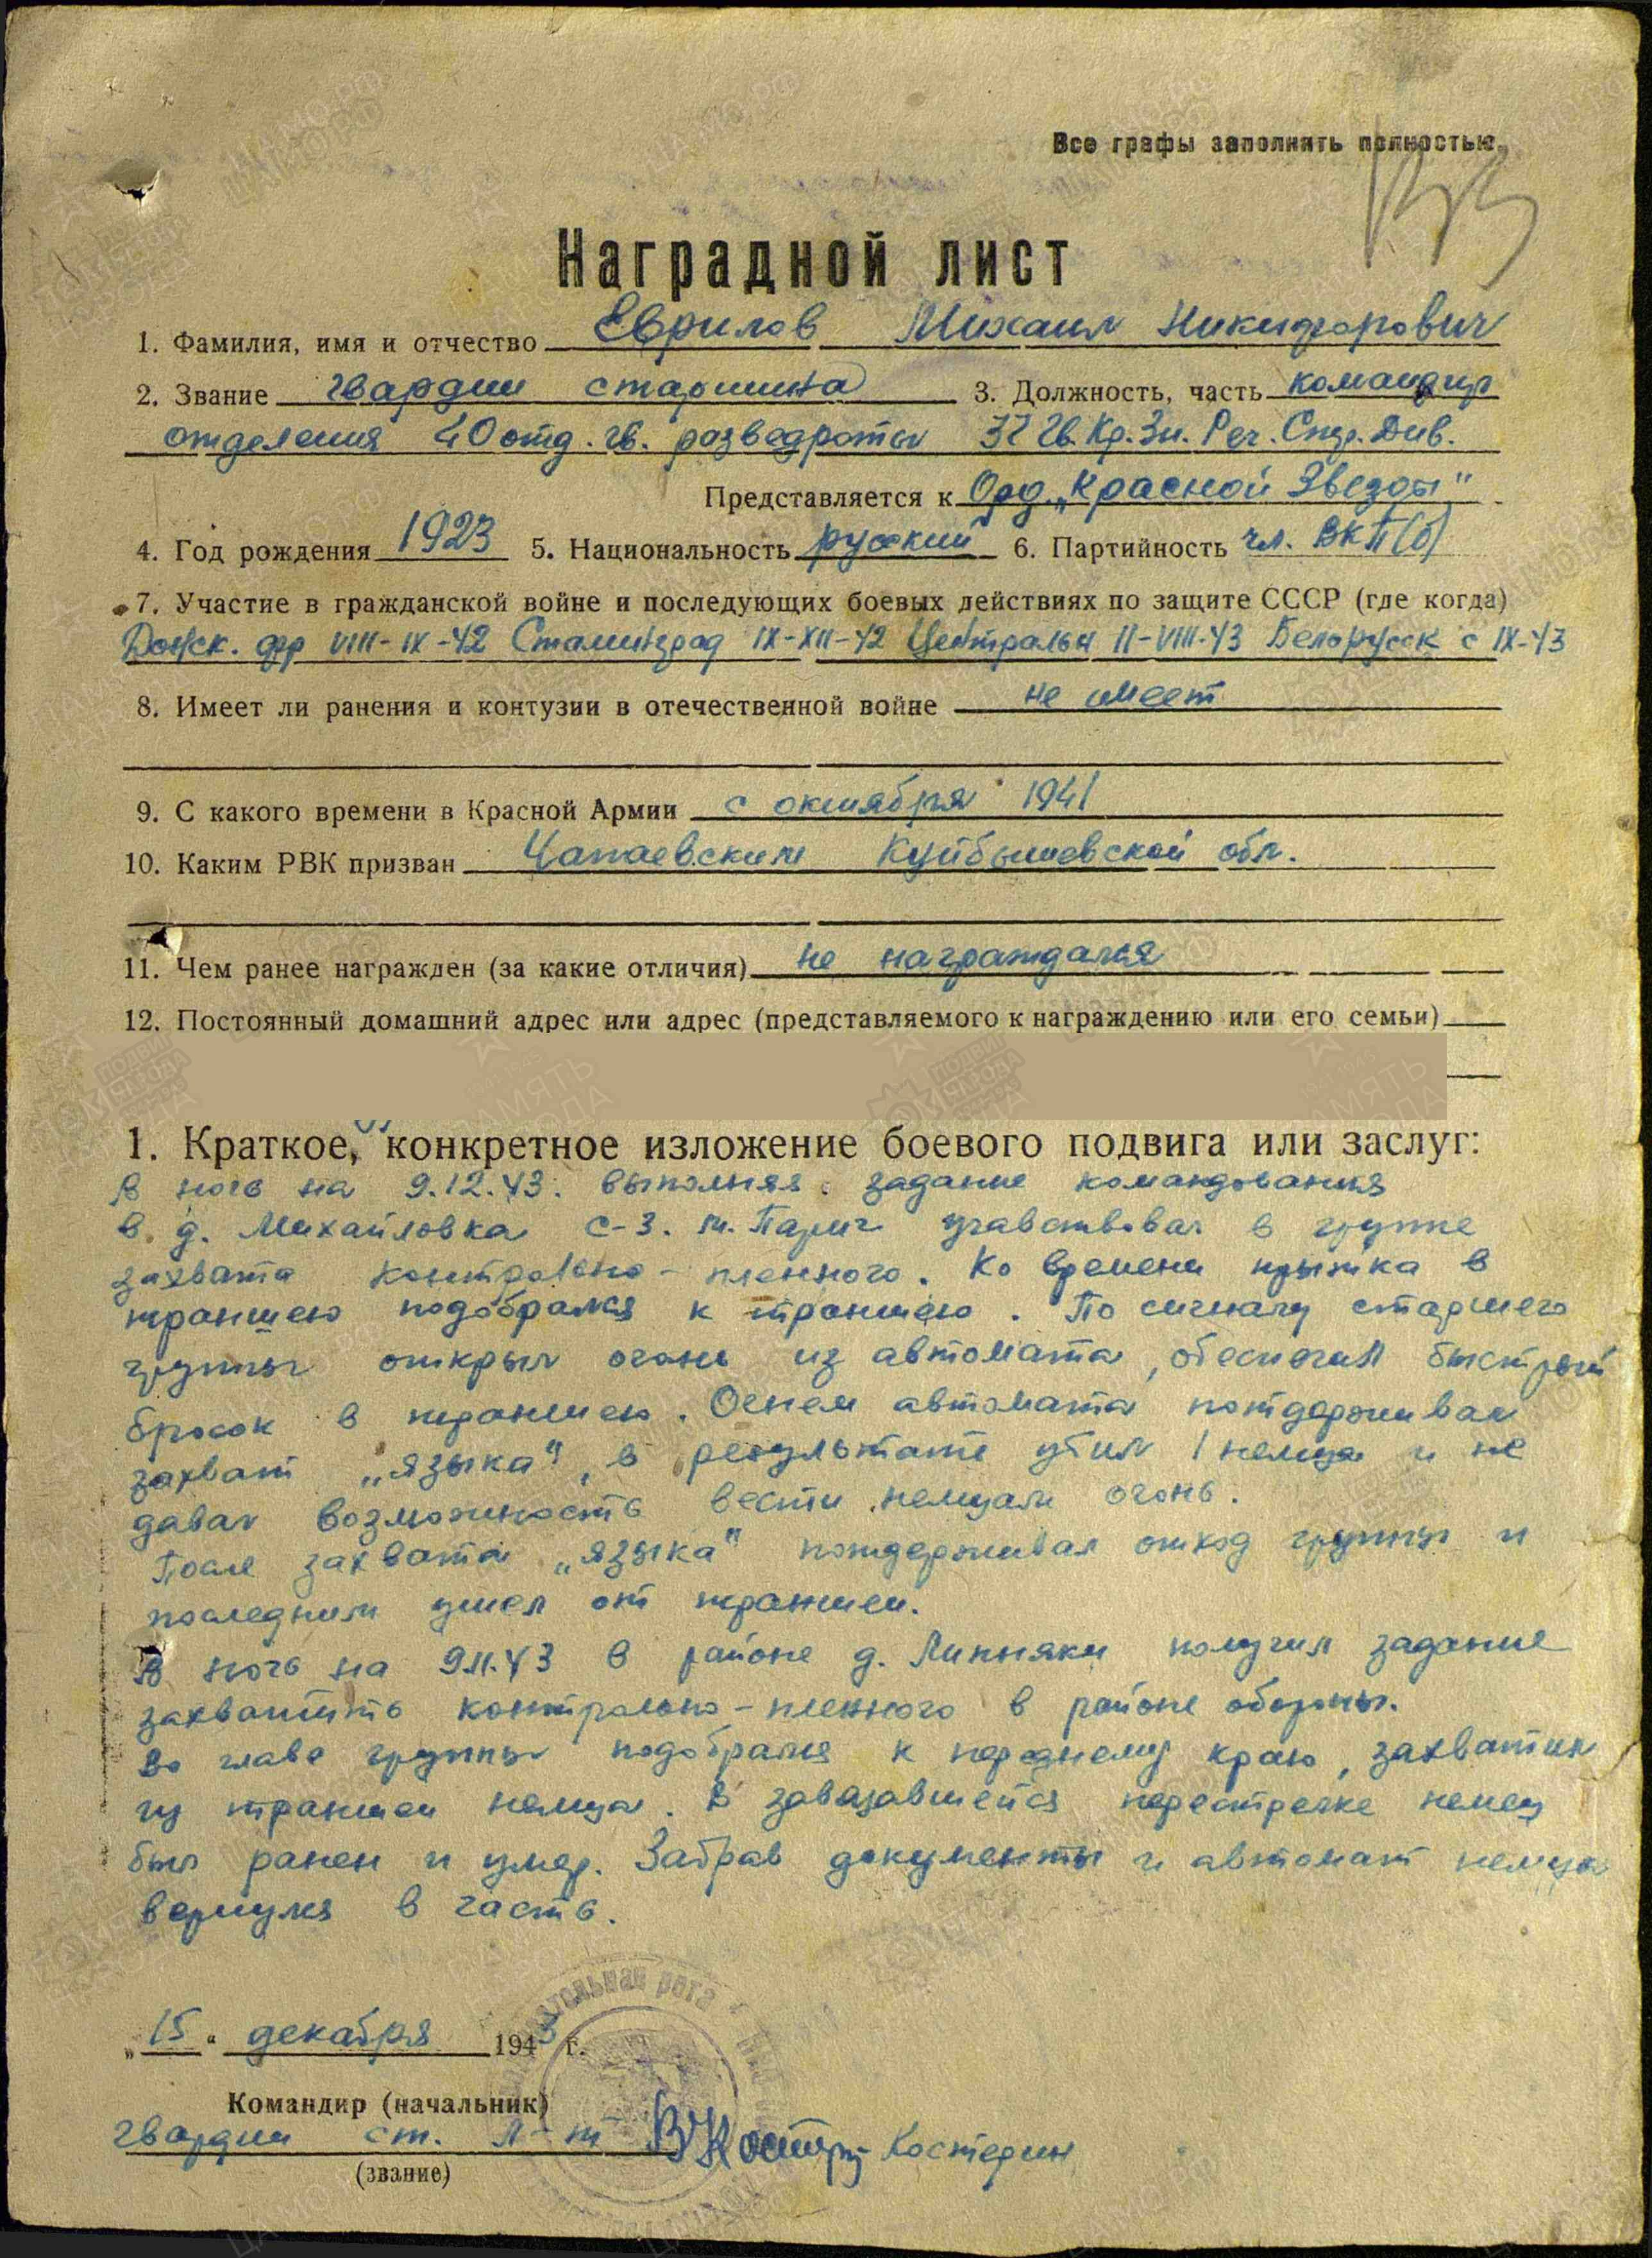 Все графы заполнять полностью.
Наградной лист
1. Фамилия, имя и отчество Еврилов Михаил Никифорович
2. Звание гвардии старшина 3. Должность, часть командир
отделения 40 отд. гв. разведроты 37 Гв. Кр. Зн. Реч. Стр. Див.
Представляется к Орд. „Красной Звезды"
4. Год рождения 1923 5. Национальность русский 6. Партийность чл. ВКП(б)
7. Участие в гражданской войне и последующих боевых действиях по защите СССР (где когда)
Донск. фр VIII-IX-42 Сталинград IX-XII-42 Центральн II-VIII-43 Белорусск с IX-43
8. Имеет ли ранения и контузии в отечественной войне не имеет
9. С какого времени в Красной Армии с октября 1941
10. Каким РВК призван Чапаевским Куйбышевской обл.
11. Чем ранее награжден (за какие отличия) не награждался
12. Постоянный домашний адрес или адрес (представляемого к награждению или его семьи)
1. Краткое, конкретное изложение боевого подвига или заслуг:
В ночь на 9.12.43. выполняя задание командования
в д. Михайловка с-з. м. Парич учавствовал в группе
захвата контрольно-пленного. Ко времени прыжка в
траншею подобрался к траншею. По сигналу старшего
группы открыл огонь из автомата, обеспечил быстрый
бросок в траншею. Огнем автомата потдерживал
захват „языка", в результате убил 1 немца и не
давал возможность вести немцам огонь.
После захвата „языка" потдерживал отход группы и
последним ушел от траншеи.
В ночь на 9.11.43 в районе д. Липняки получил задание
захватить контрольно-пленного в районе обороны.
Во главе группы подобрался к переднему краю, захватил
из траншеи немца. В завязавшейся перестрелке немец
был ранен и умер. Забрав документы и автомат немца
вернулся в часть.
„15" декабря 1943 г.
Командир (начальник)
гвардии ст. л-т Костерин
(звание)